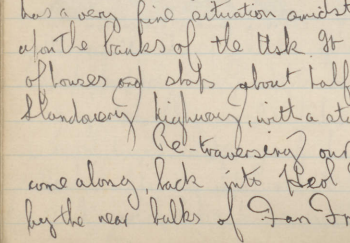 has a very fine situation amidst
upon the banks of the Usk. It
of houses and shops about half
Llandovery highway, with a sta
Re-traversing our
come along, back into Heol
by the near bulks of Fan Fr